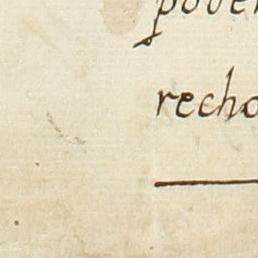 pobe
recho